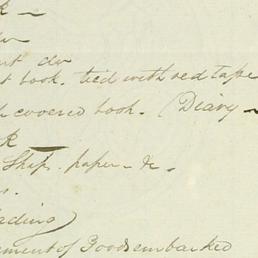 do
t book. tied with red tape
covered book. (Diary -
Ships. paper - &c.
ading)
ement of Goods embarked